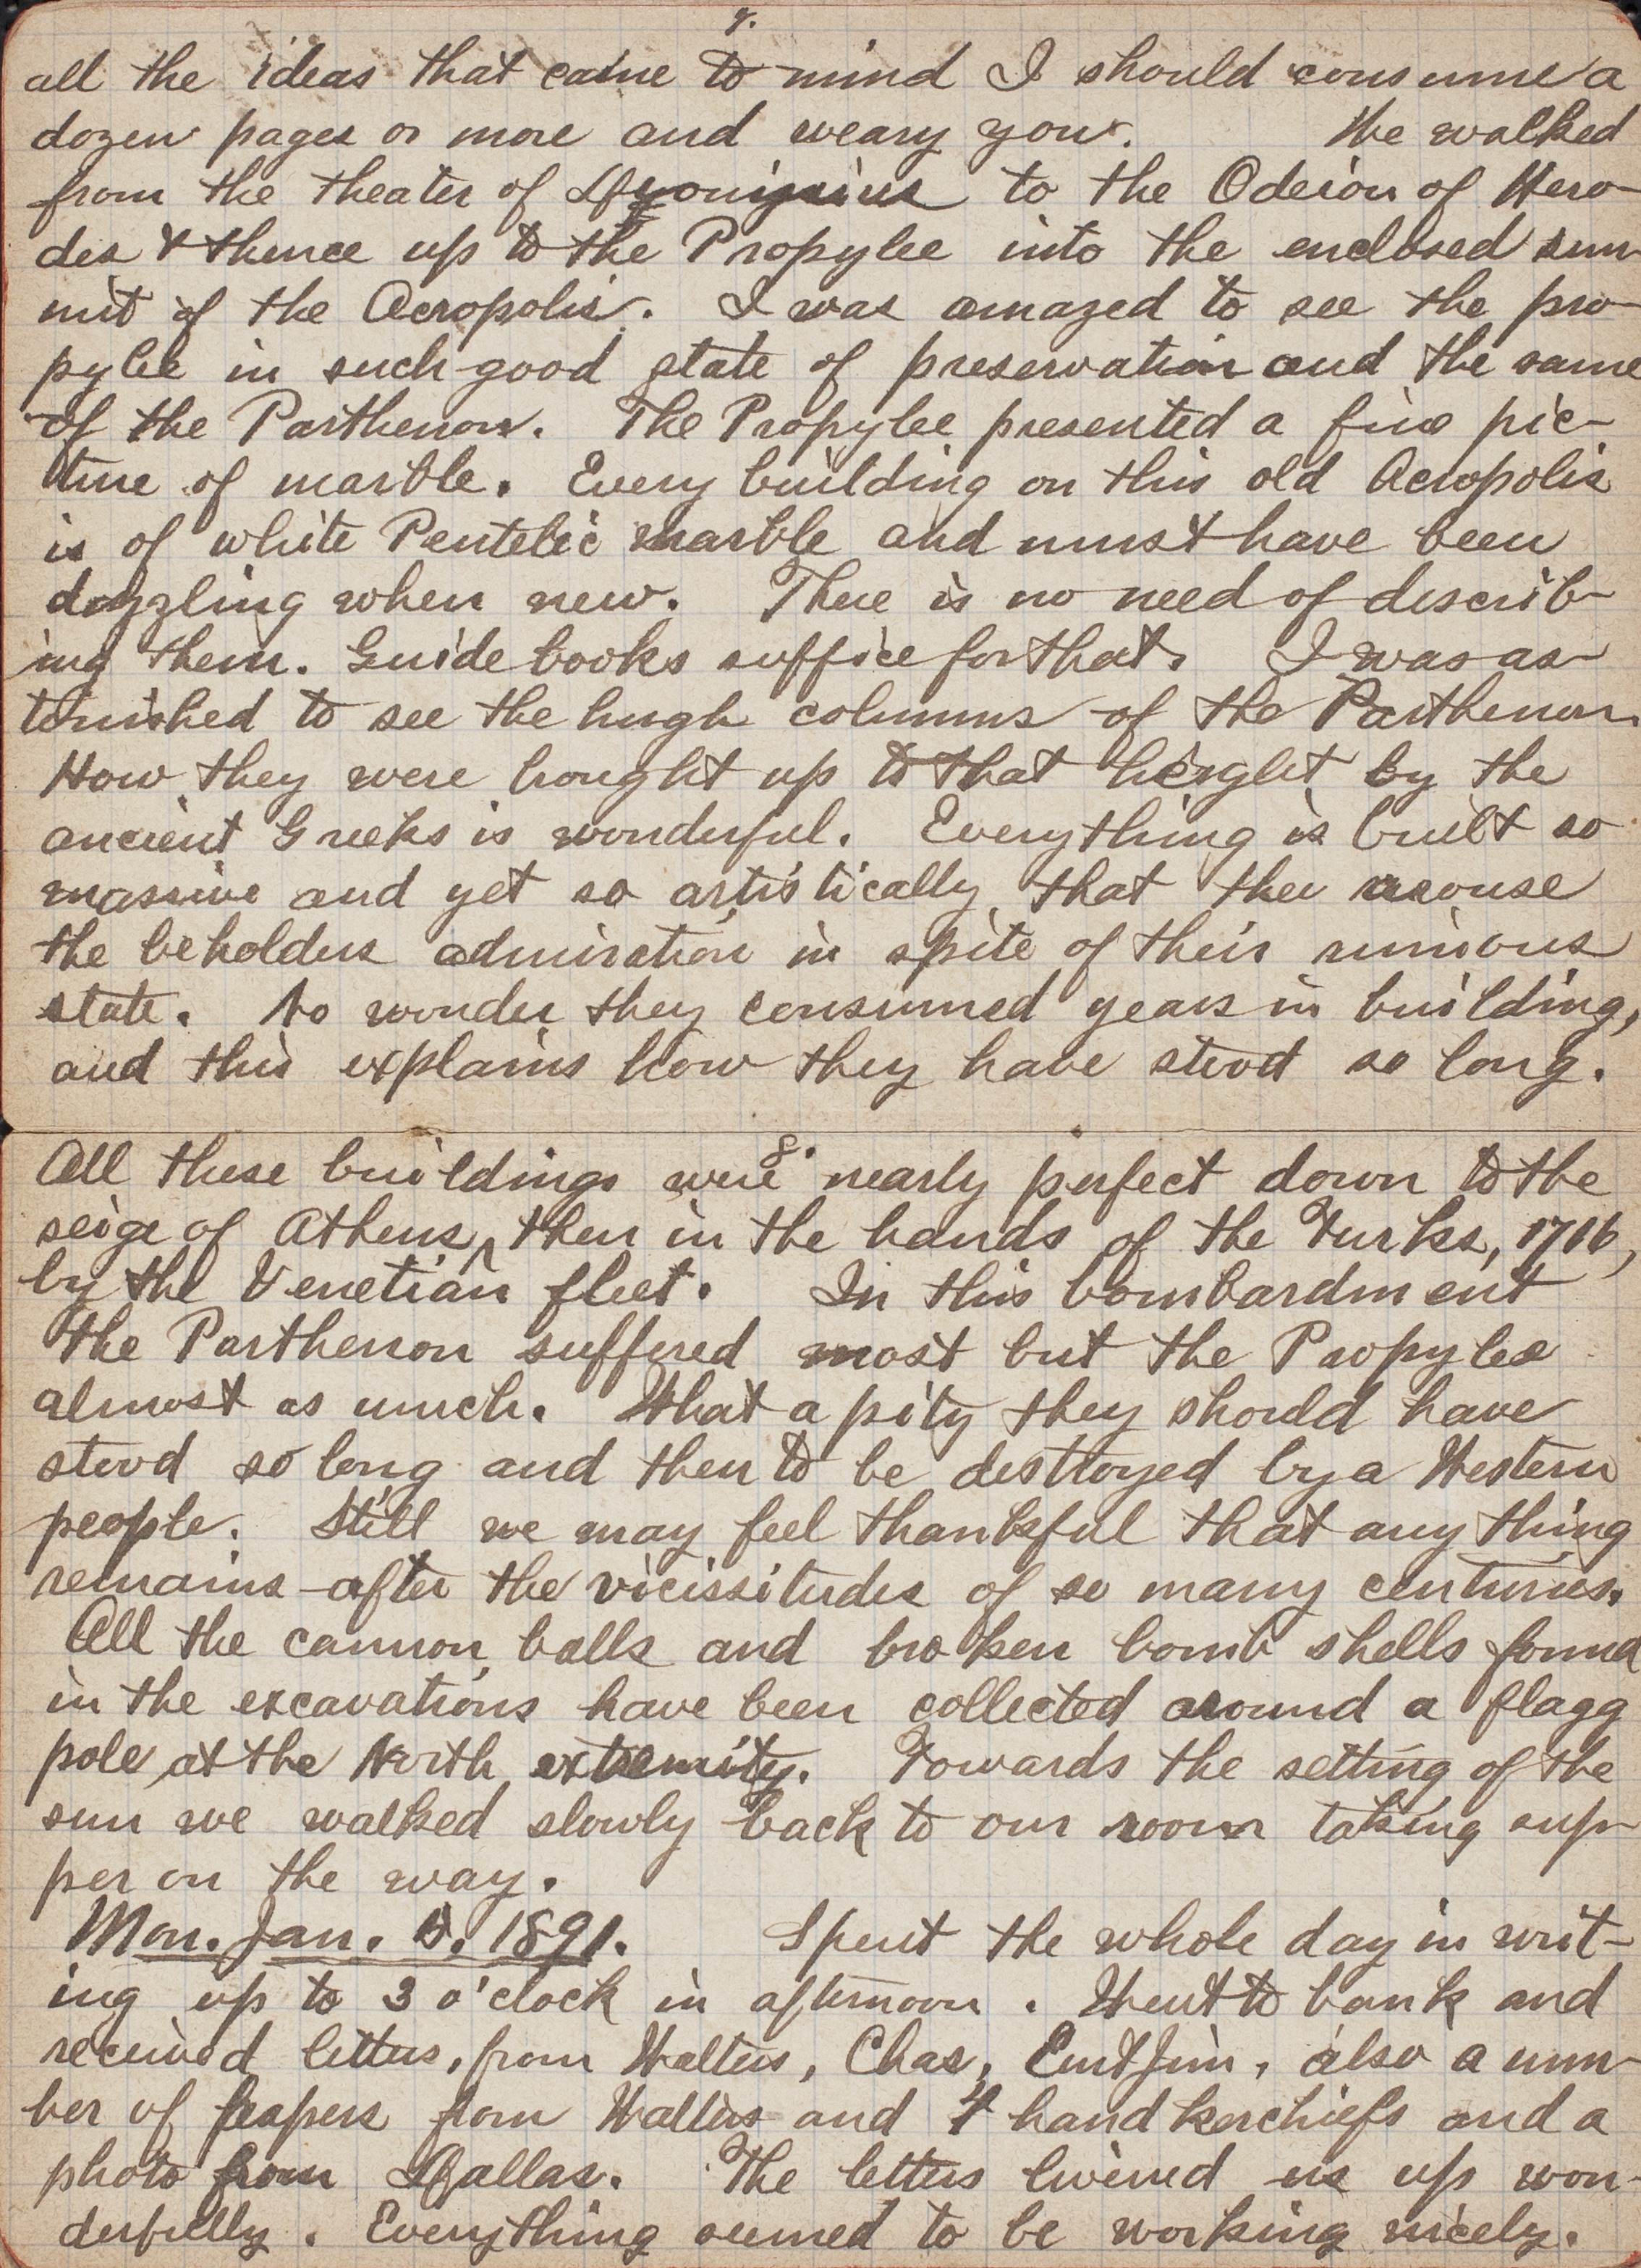 7.
all the ideas that came to mind I should consume a
dozen pages or more and weary you. We walked
from the theater of Dyonisius to the Odeion of Hero-
des & thence up to the Propylee into the enclosed sum-
mit of the Acropolis. I was amazed to see the pro-
pylee in such good state of preservation and the same
of the Parthenon. The Propylee presented a fine pic-
ture of marble. Every building on this old Acropolis
is of white Pentelic marble and must have been
dazzling when new. There is no need of describ-
ing them. Guide books suffice for that. I was as-
tonished to see the hugh columns of the Parthenon.
How they were brought up to that height by the
ancient Greeks is wonderful. Everything is built so
massive and yet so artistically that they arouse
the beholders admiration in spite of their ruinous
state. No wonder they consumed years in building,
and this explains how they have stood so long.
8.
All these buildings were nearly perfect down to the
seige of Athens, then in the hands of the Turks, 1716,
by the Venetian fleet. In this bombardment
the Parthenon suffered most but the Propylee
almost as much. What a pity they should have
stood so long and then to be destroyed by a Western
people. Still we may feel thankful that any thing
remains after the vicissitudes of so many centuries.
All the cannon balls and broken bomb shells found
in the excavations have been collected around a flagg
pole at the North extremity. Towards the setting of the
sun we walked slowly back to our room taking sup-
per on the way.
Mon. Jan. 5. 1891. Spent the whole day in writ-
ing up to 3 o'clock in afternoon. Went to bank and
received letters, from Walters, Chas, Jim, also a num-
ber of papers from Walters and 4 handkerchiefs and a
photo from Dallas. The letters livened us up won-
derfully. Everything seemed to be working nicely.